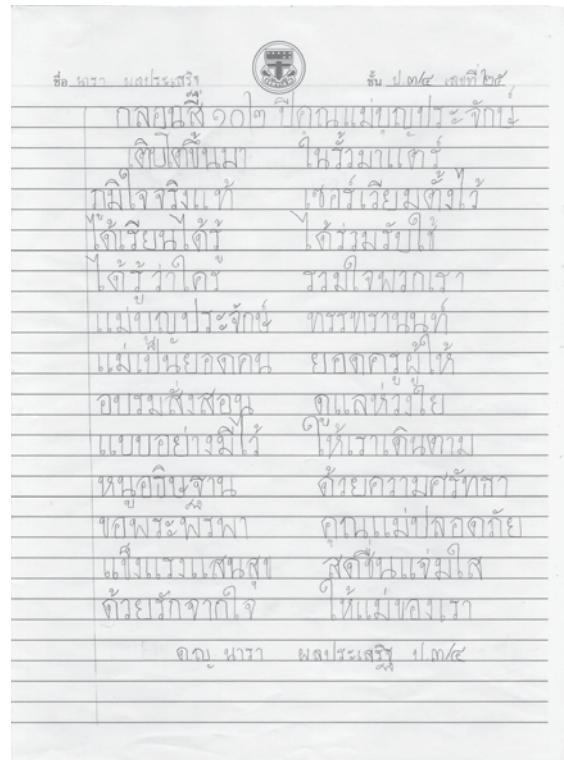 ชื่อ นารา ผลประเสริฐ ชั้น ป.๓/๔ เลขที่ ๒๕
กลอนสี่ ๑๐๒ ปีคุณแม่บุญประจักษ์
เติบโตขึ้นมา ในรั้วมาแตร์
ภูมิใจจริงแท้ เซอร์เวียมตั้งไว้
ได้เรียนได้รู้ ได้ร่วมรับใช้
ได้รู้ว่าใคร รวมใจพวกเรา
แม่บุญประจักษ์ ทรรทรานนท์
แม่เป็นยอดคน ยอดครูผู้ให้
อบรมสั่งสอน ดูแลห่วงใย
แบบอย่างมีไว้ ให้เราเดินตาม
หนูอธิษฐาน ด้วยความศรัทธา
ขอพระพรพา คุณแม่ปลอดภัย
แข็งแรงแสนสุข สดชื่นแจ่มใส
ด้วยรักจากใจ ให้แม่ของเรา
ด.ญ. นารา ผลประเสริฐ ป.๓/๔